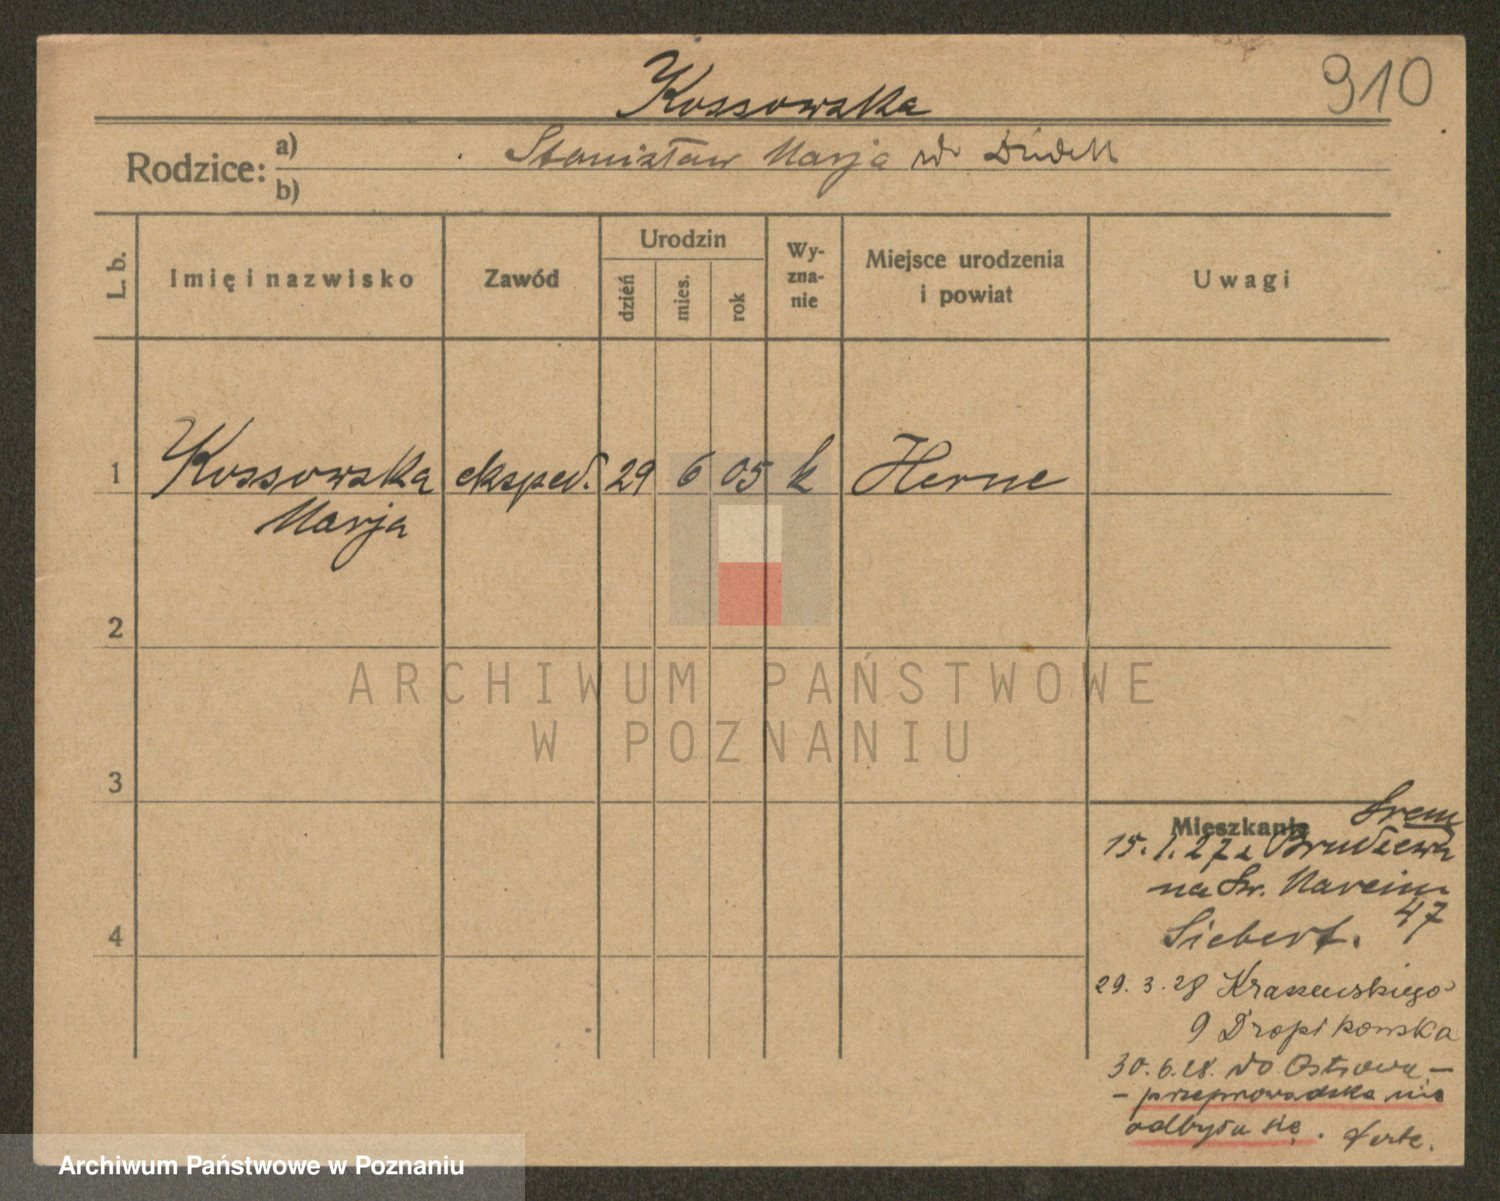 Kossowska
910
Rodzice: a) Stanisław Marja
b)
L. b.
Imię i nazwisko
Zawód
Urodzin
dzień
mies.
rok
Wy-
zna-
nie
Miejsce urodzenia
i powiat
Uwagi
1 Kossowska eksped. 29 6 05 k Herne
Marja
2
ARCHIWUM PAŃSTWOWE
W POZNANIU
3
4
Śrem
Mieszkania
15. 1. 27 z Brudzewa
na Św. Marcin
47
Siebert.
29. 3. 28 Kraszewskiego
9 Dropikowska
30. 6. 28. do Ostrowa –
– przeprowadzka nie
odbyła się.
Archiwum Państwowe w Poznaniu